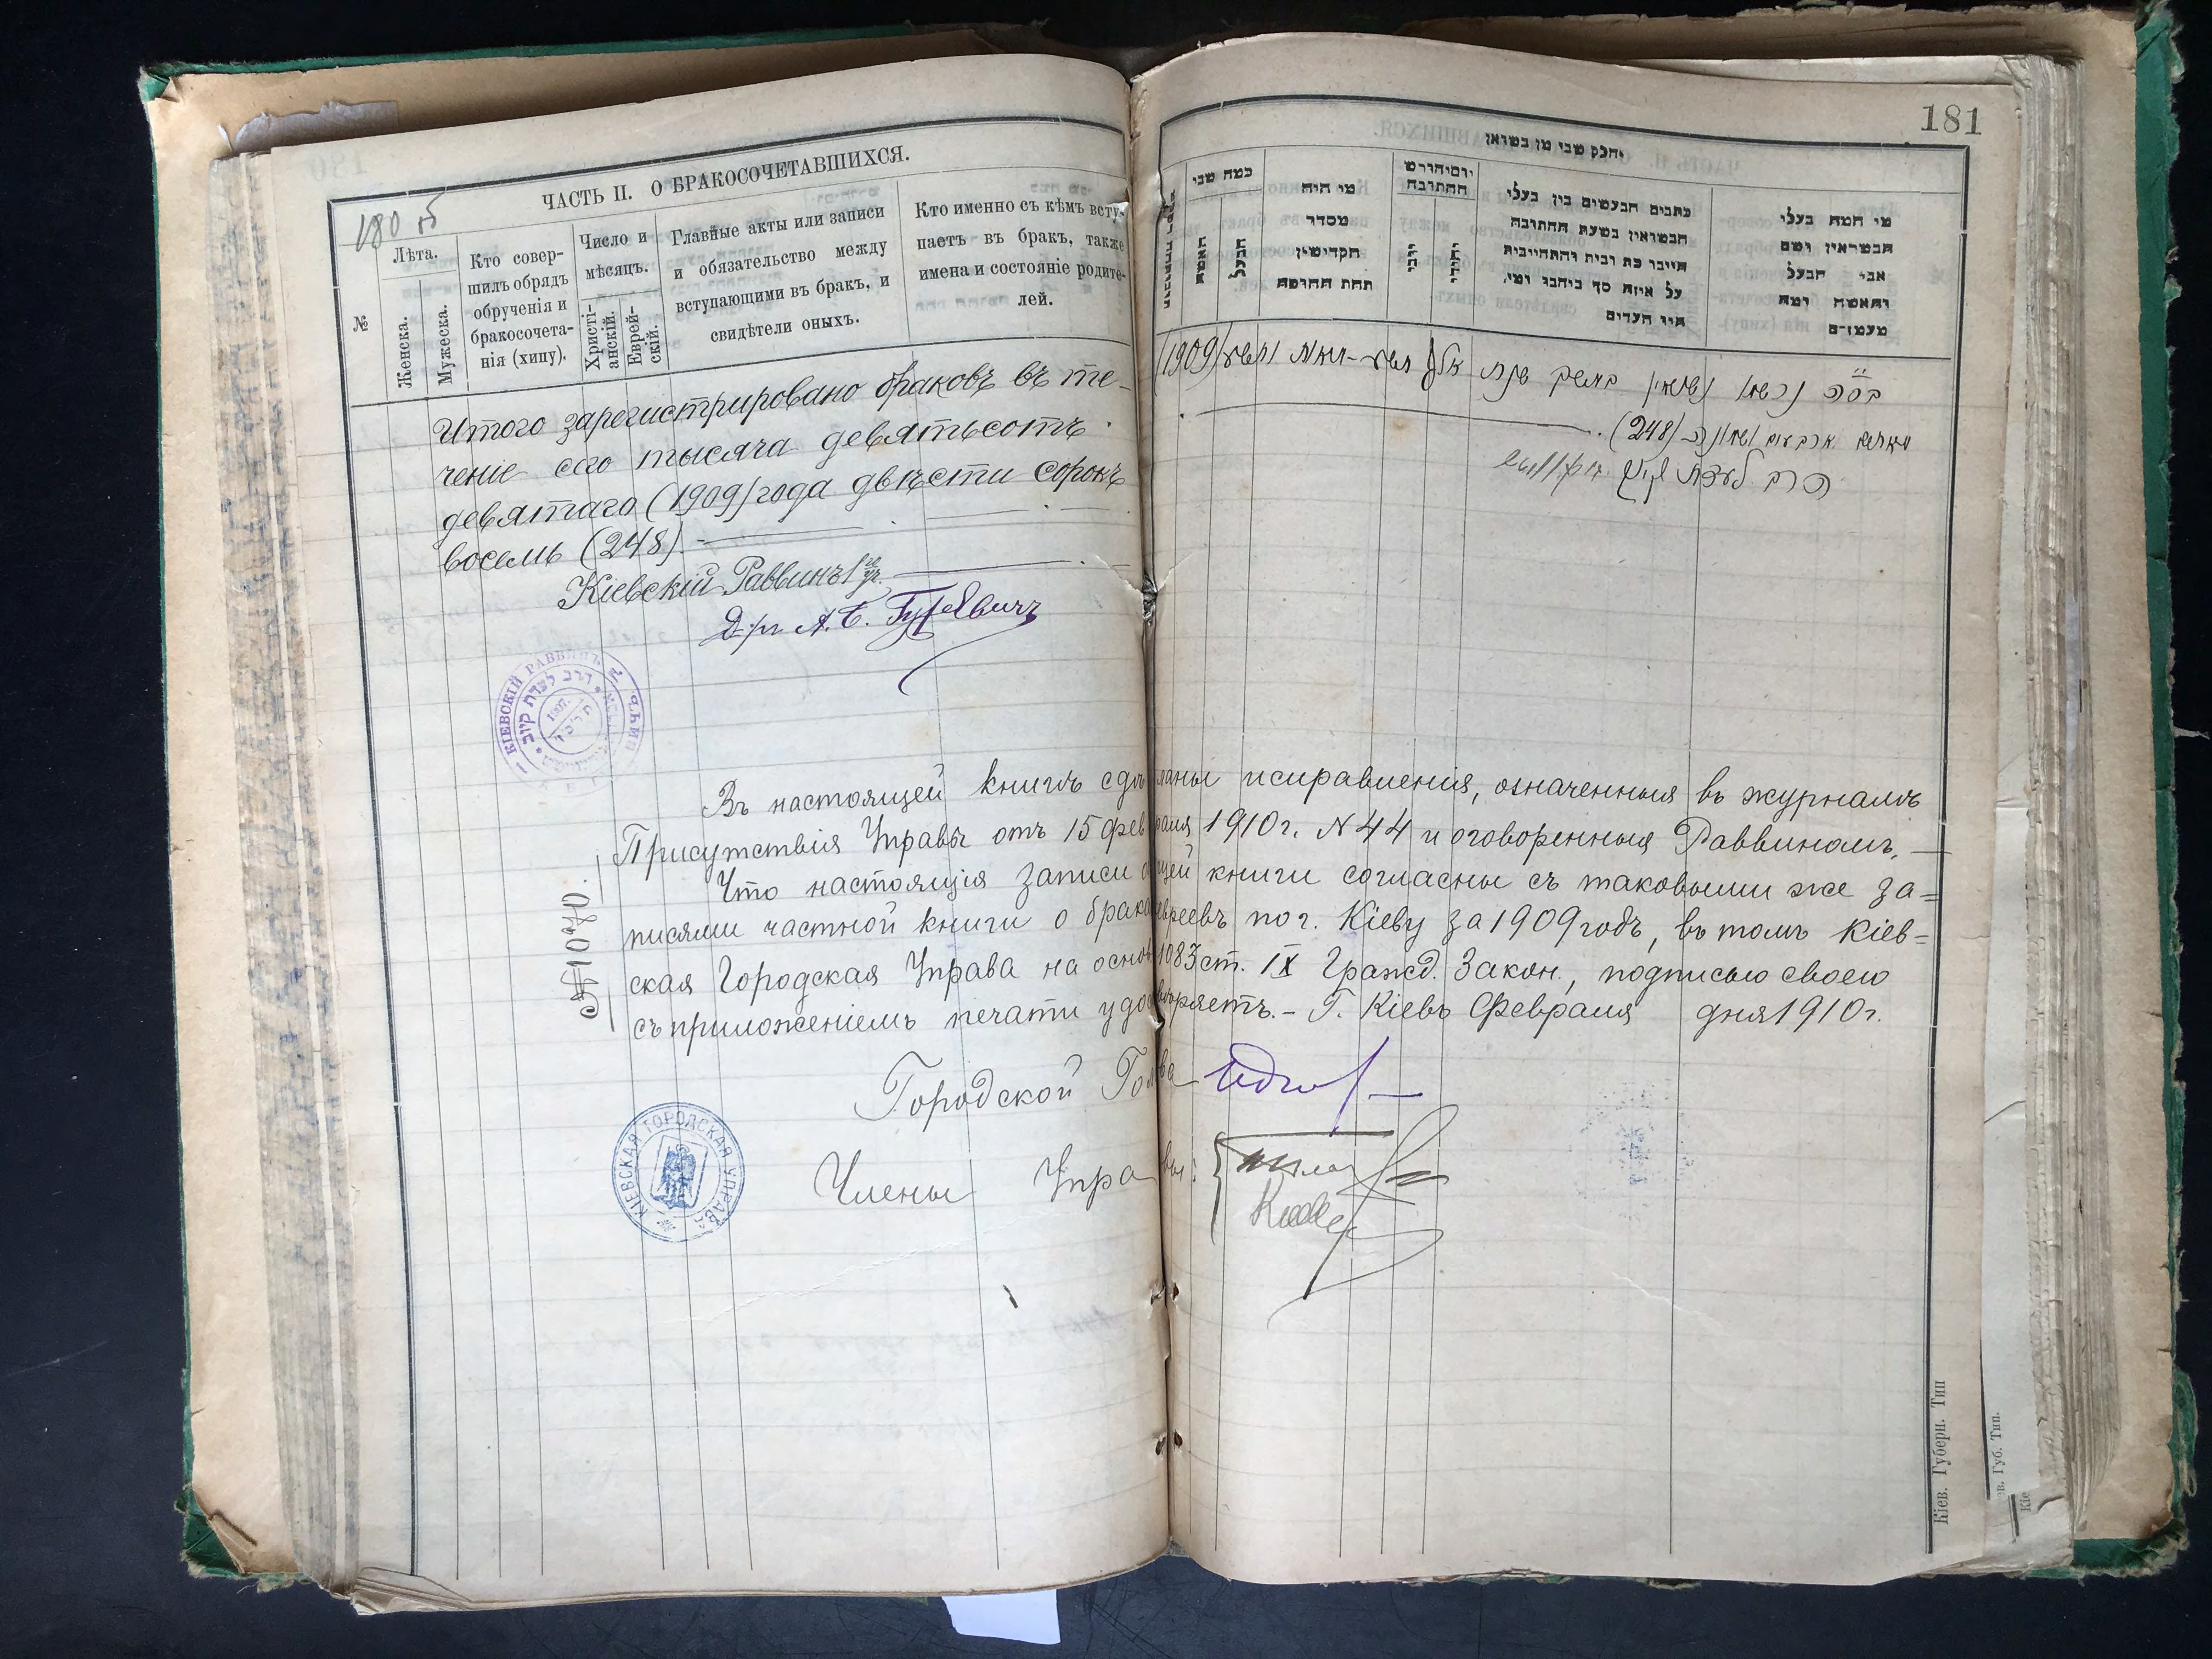 180 об
ЧАСТЬ II. О БРАКОСОЧЕТАВШИХСЯ.
№
Лѣта.
Женска.
Мужеска.
Кто совер-
шилъ обрядъ
обрученія и
бракосочета-
нія (хипу).
Число и
мѣсяцъ.
Христі-
анскій.
Еврей-
скій.
Главные акты или записи
и обязательство между
вступающими въ бракъ, и
свидѣтели оныхъ.
Кто именно съ кѣмъ всту-
паетъ въ бракъ, также
имена и состояніе родите-
лей.
Итого зарегистрировано браковъ въ те-
ченіе сего тысяча девятьсотъ
девятаго (1909) года двѣсти сорокъ
восемь (248).
Кіевскій Раввинъ
Д-ръ А. Б. Гуревичъ
КІЕВСКІЙ РАВВИНЪ
הרב לעדת קיוב
1907
181
וחלק שני מן בשואן
כמה שני
האשה
הבעל
מי היה
מסדר
הקדושין
תחת החופה
יום וחודש
החתונה
יוני
יהודי
כתבים הנעשים בין בעלי
הנשואין בשעת החתונה
היינו כת ובית והתחייבות
על איזה סך ביחבו ומי,
היו העדים
מי המה בעלי
הנשואין ושם
אבי הבעל
והאשה ומה
מעמדם
בס״ה נרשמו נשואין במשך שנת אלף תשע מאות ותשע (1909)
מאתים ארבעים ושמונה (248).
הרב לעדת קיוב
Въ настоящей книгѣ сдѣланы исправленія, означенныя въ журналѣ
Присутствія Управы отъ 15 февраля 1910 г. № 44 и оговоренныя Раввиномъ.
Что настоящія записи общей книги согласны съ таковыми же за=
писями частной книги о бракѣ евреевъ по г. Кіеву за 1909 годъ, въ томъ Кіев=
ская Городская Управа на основ. 1083 ст. IX Гражд. Закон., подписью своею
съ приложеніемъ печати удостовѣряетъ. – Г. Кіевъ Февраля дня 1910 г.
№ 1070.
Городской Голова
Члены Управы:
КІЕВСКАЯ ГОРОДСКАЯ УПРАВА
Кіев. Губерн. Тип
ев. Губ. Тип.
Кіе